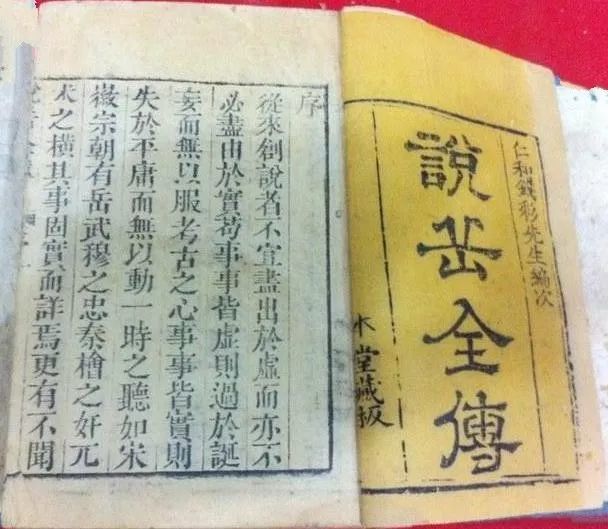 仁和錢彩先生編次
說岳全傳
木堂藏板
序
從來創說者不宜盡出於虛而亦不
必盡由於實苟事事皆虛則過於誕
妄而無以服考古之心事事皆實則
失於平庸而無以動一時之聽如宋
徽宗朝有岳武穆之忠秦檜之奸兀
朮之橫其事固實而詳焉更有不聞